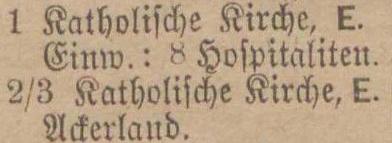 1 Katholische Kirche, E.
Einw.: 8 Hospitaliten.
2/3 Katholische Kirche, E.
Ackerland.